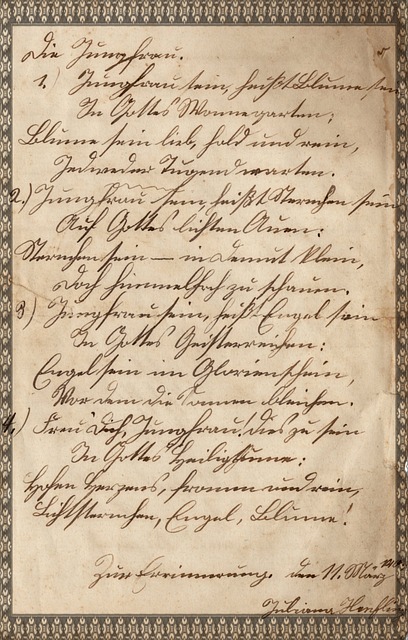 Die Jungfrau.
1.) Jungfrau sein, heißt Blume sein
In Gottes Wonnegarten;
Blume sein lieb, hold und rein,
Jedweder Tugend warten.
2.) Jungfrau sein heißt Sternchen sein
Auf Gottes lichten Auen:
Sternchen sein — in Demut klein,
Doch himmelhoch zu schauen.
3.) Jungfrau sein, heißt Engel sein
In Gottes Geisterreichen:
Engel sein im Glorienschein,
Vor dem die Sonnen bleichen.
4.) Freu Dich, Jungfrau! dies zu sein
In Gottes Heiligtume:
Hohen Herzens, fromm und rein,
Lichtsternchen, Engel, Blume!
Zur Erinnerung. den 11. März
Juliana